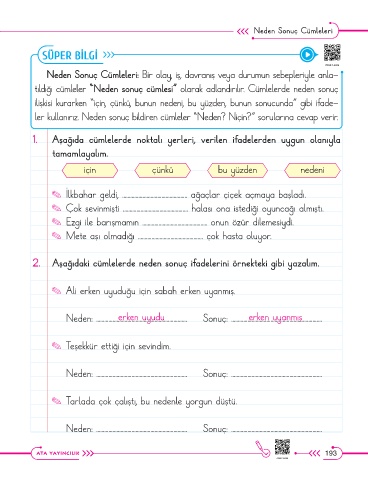 Neden Sonuç Cümleleri
SÜPER BİLGİ
Neden Sonuç Cümleleri: Bir olay, iş, davranış veya durumun sebepleriyle anla-
tıldığı cümleler "Neden sonuç cümlesi" olarak adlandırılır. Cümlelerde neden sonuç
ilişkisi kurarken "için, çünkü, bunun nedeni, bu yüzden, bunun sonucunda" gibi ifade-
ler kullanırız. Neden sonuç bildiren cümleler "Neden? Niçin?" sorularına cevap verir.
1. Aşağıda cümlelerde noktalı yerleri, verilen ifadelerden uygun olanıyla
tamamlayalım.
için çünkü bu yüzden nedeni
İlkbahar geldi, ........................ ağaçlar çiçek açmaya başladı.
Çok sevinmişti ........................ halası ona istediği oyuncağı almıştı.
Ezgi ile barışmamın ........................ onun özür dilemesiydi.
Mete aşı olmadığı ........................ çok hasta oluyor.
2. Aşağıdaki cümlelerde neden sonuç ifadelerini örnekteki gibi yazalım.
Ali erken uyuduğu için sabah erken uyanmış.
Neden: erken uyudu Sonuç: erken uyanmış
Teşekkür ettiği için sevindim.
Neden: ........................ Sonuç: ........................
Tarlada çok çalıştı, bu nedenle yorgun düştü.
Neden: ........................ Sonuç: ........................
ATA YAYINCILIK
193